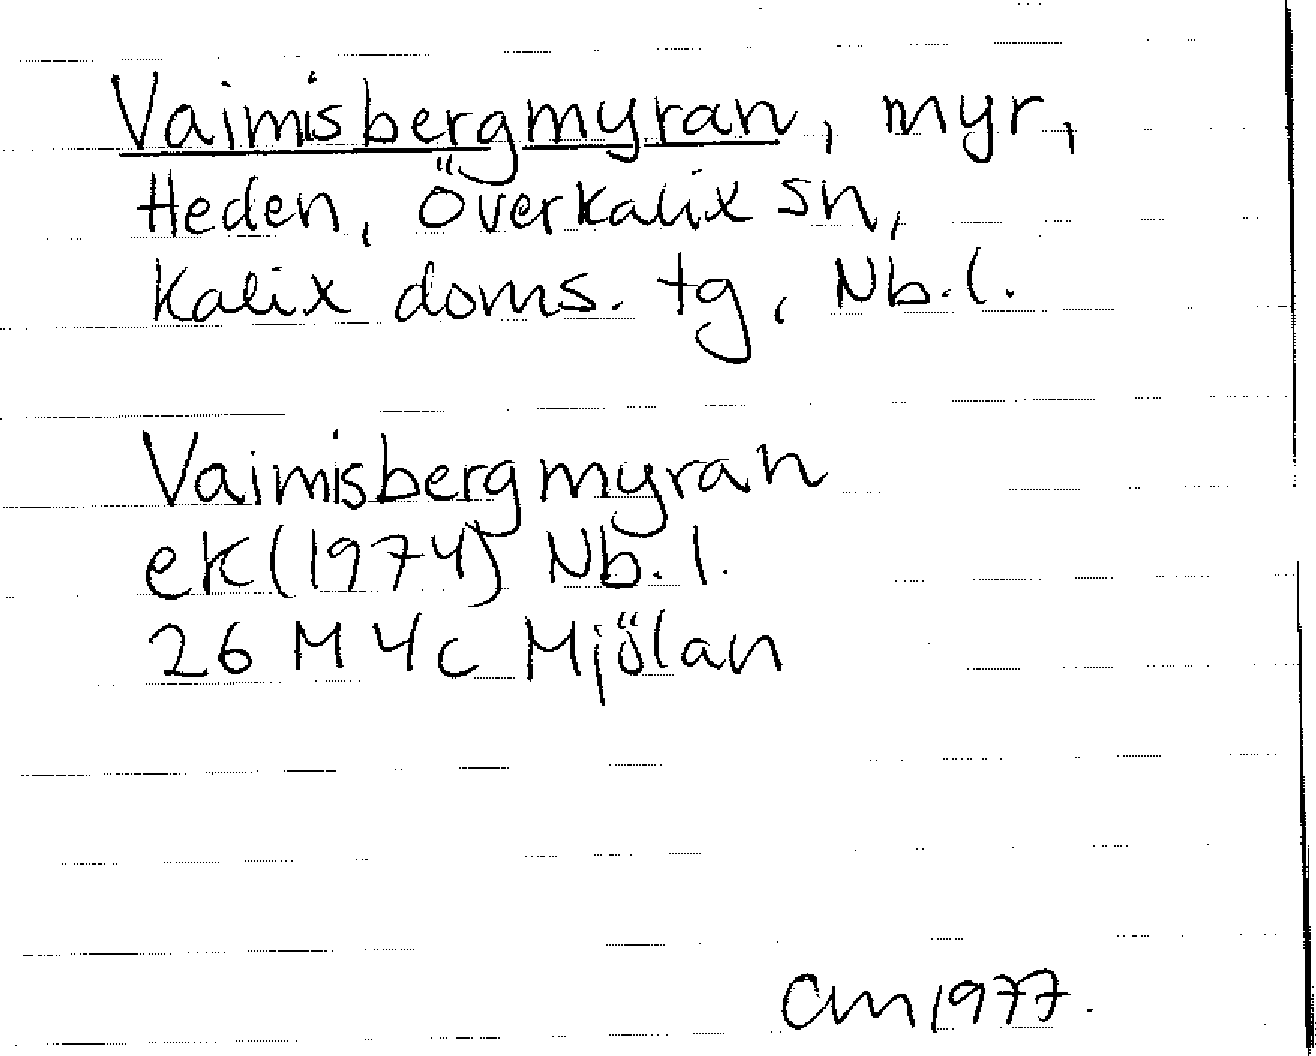 Vaimisbergmyran, myr,
Heden, Överkalix sn,
Kalix doms. tg, Nb.l.
Vaimisbergmyran
ek (1974) Nb.l.
26 M 4c Mjölan
CM 1977.